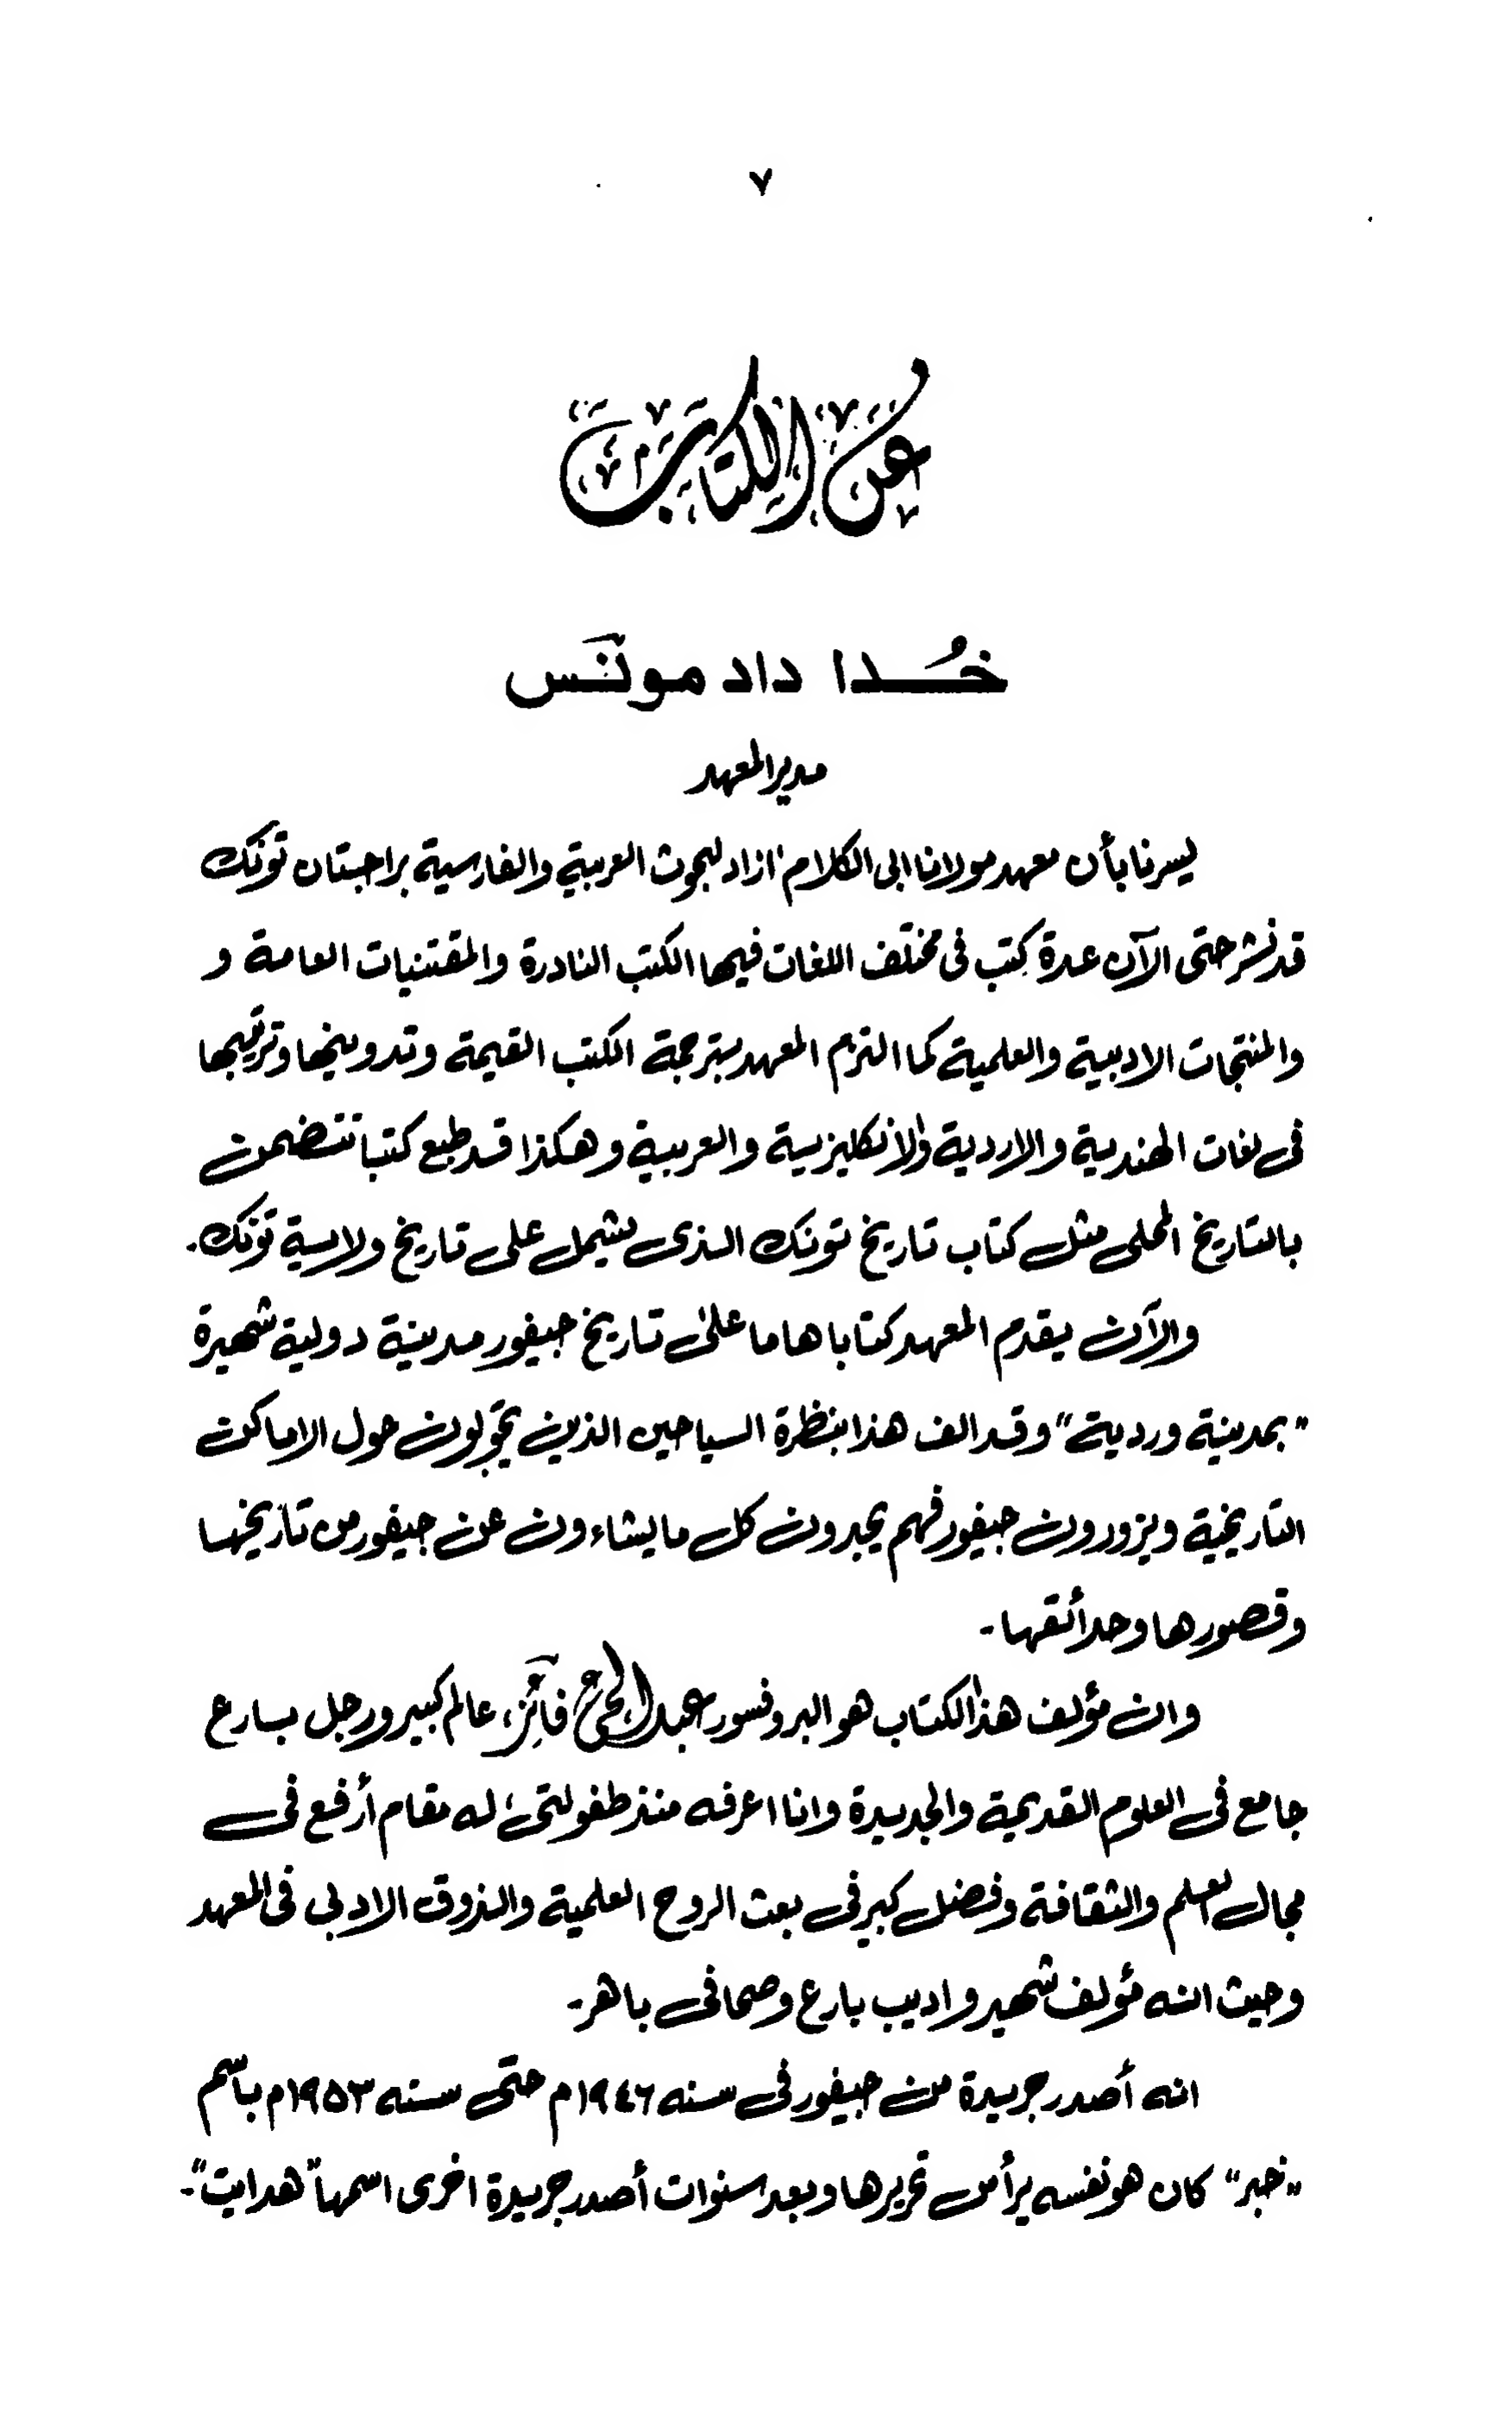 ٧
عن الكتاب
خُدا داد مونَس
مدير المعهد
يسرنا بأن معهد مولانا ابى الكلام ازاد لبحوث العربية والفارسية براجستان تونك
قد نشر حتى الآن عدة كتب فى مختلف اللغات فيها الكتب النادرة والمقتنيات العامة و
والمنتجات الادبية والعلمية كما التزم المعهد بترجمة الكتب القيمة وتدوينها وترتيبها
فى لغات الهندية والاردية والانكليزية والعربية وهكذا قد طبع كتبا تتضمن
بالتاريخ المحلى مثل كتاب تاريخ تونك الذى يشمل على تاريخ ولاية تونك.
والآن يقدم المعهد كتابا هاما على تاريخ جيفور مدينة دولية شهيرة
"بمدينة وردية" وقد الف هذا بنظرة السياحين الذين يتجولون حول الاماكن
التاريخية ويزورون جيفور فهم يجدون كل ما يشاءون عن جيفور من تاريخها
وقصورها وحدائقها۔
وان مؤلف هذا الكتاب هو البروفسور عبد الحى فائز، عالم كبير ورجل بارع
جامع فى العلوم القديمة والجديدة وانا اعرفه منذ طفولتى، له مقام أرفع فى
مجال العلم والثقافة وفضل كبير فى بعث الروح العلمية والذوق الادبى فى المعهد
وحيث انه مؤلف شهير واديب بارع وصحافى باهر۔
انه أصدر جريدة من جيفور فى سنه ١٩٤٦م حتى سنه ١٩٥٣م باسم
"خبر" كان هو نفسه يرأس تحريرها وبعد سنوات أصدر جريدة اخرى اسمها "هدايت"۔